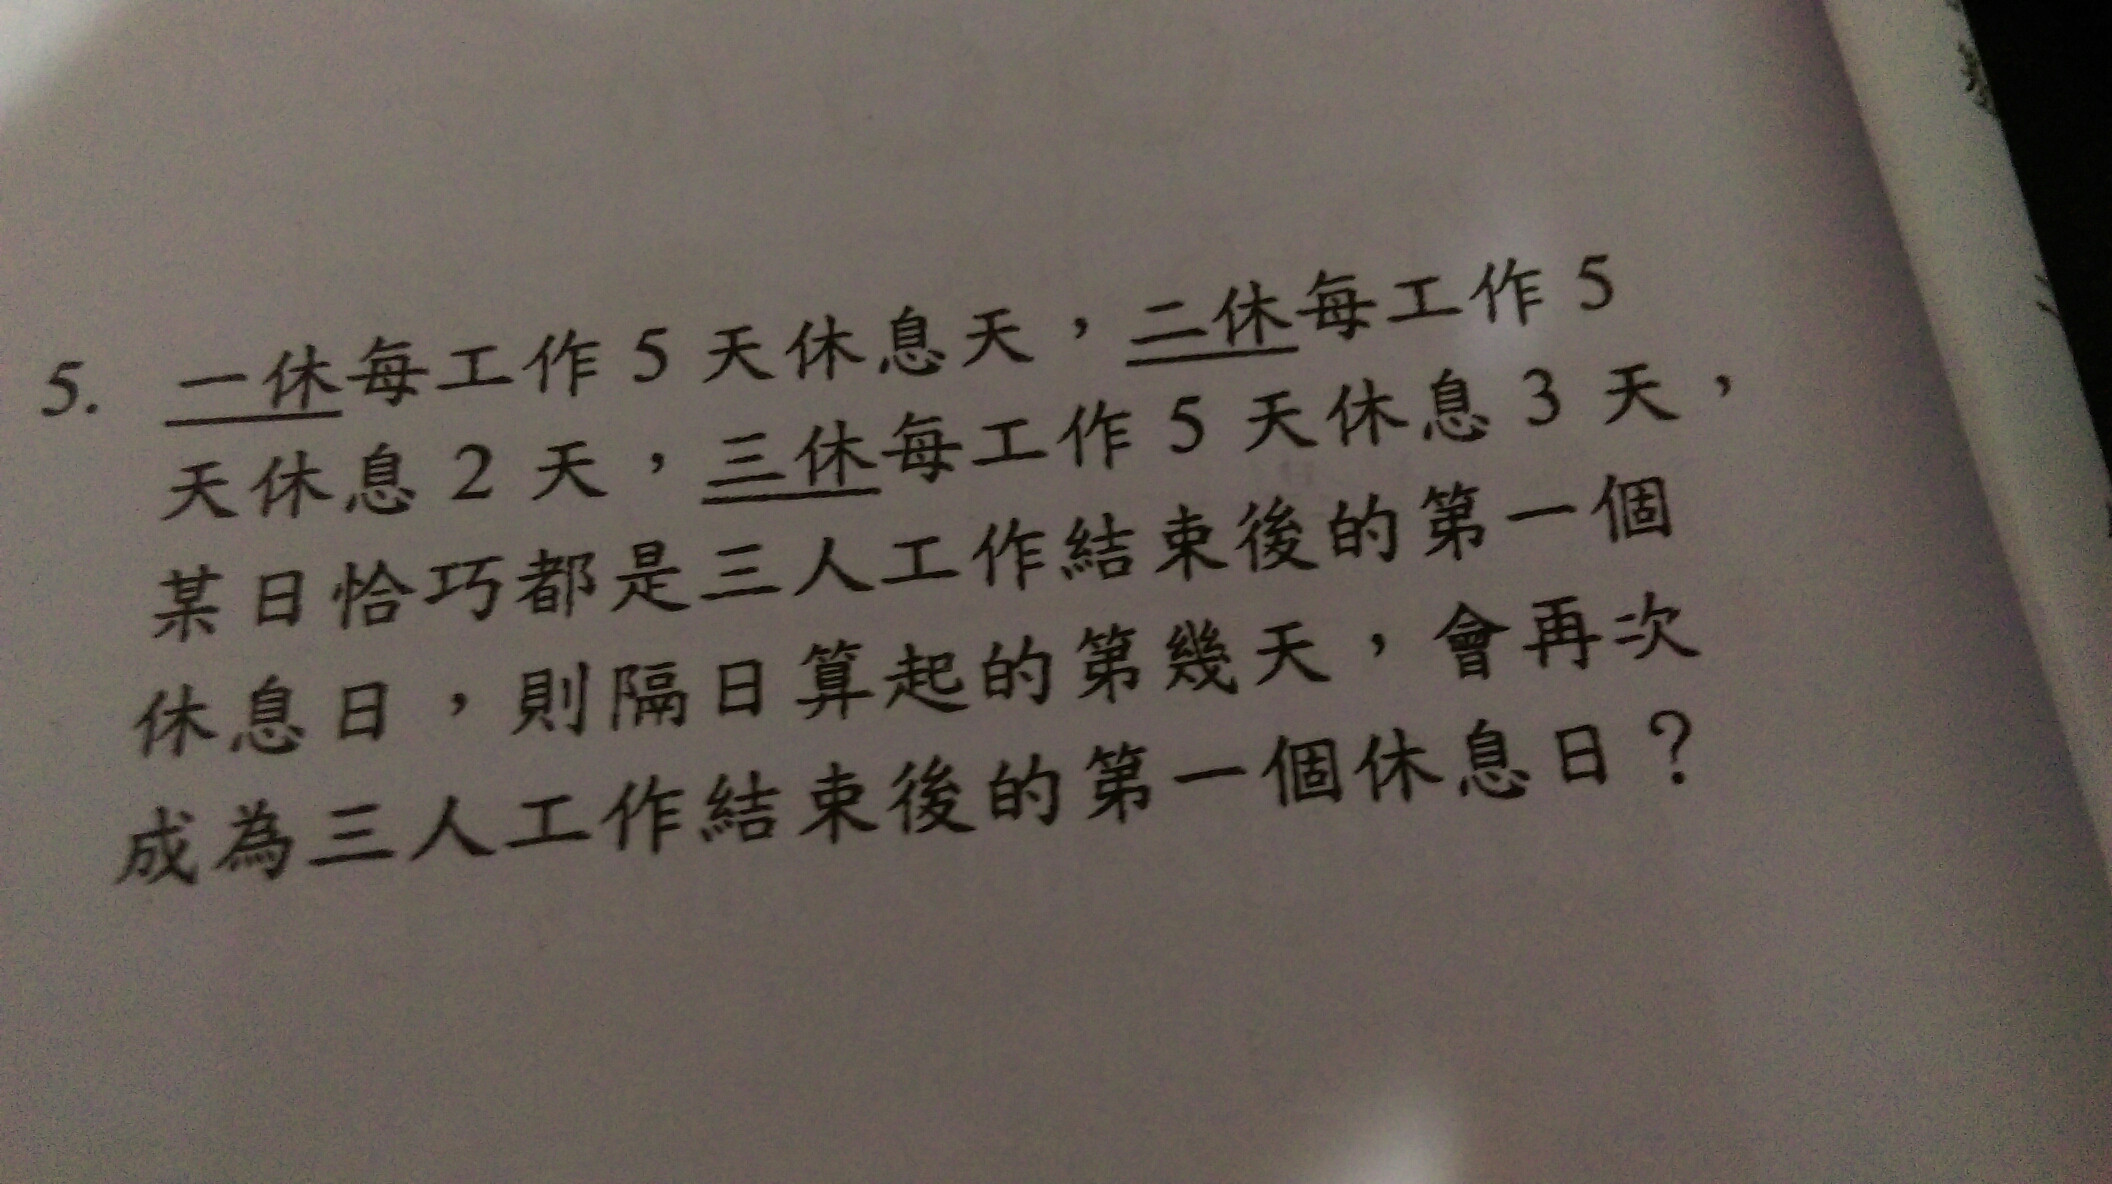 5. 一休每工作 5 天休息天，二休每工作 5
天休息 2 天，三休每工作 5 天休息 3 天，
某日恰巧都是三人工作結束後的第一個
休息日，則隔日算起的第幾天，會再次
成為三人工作結束後的第一個休息日？